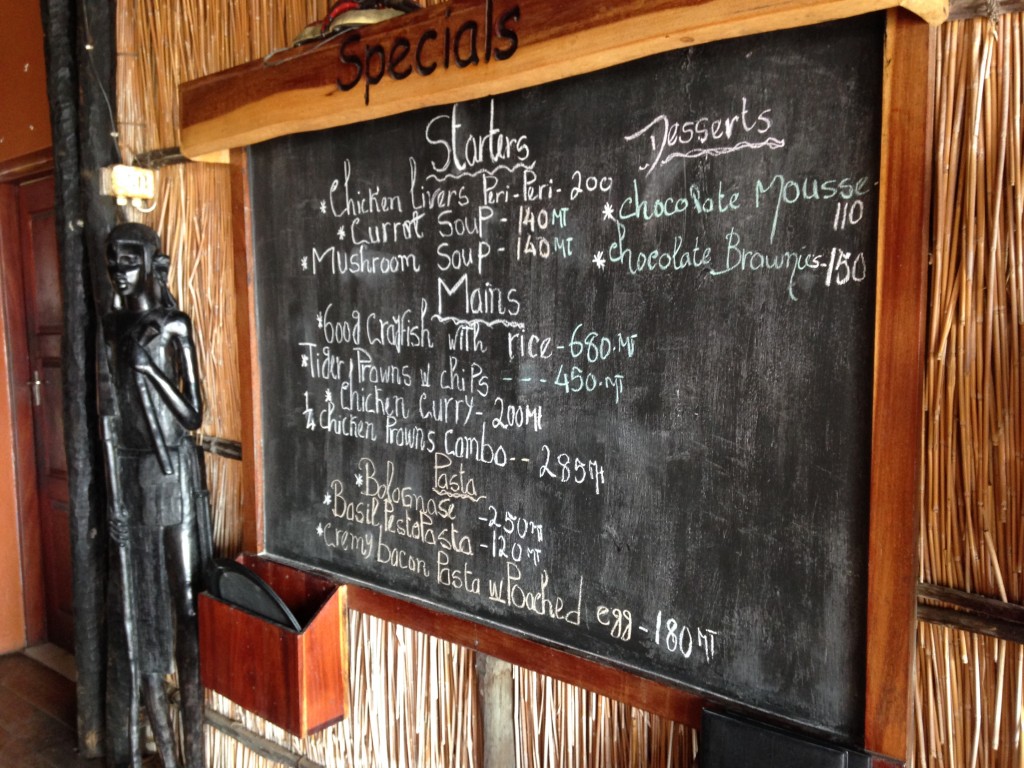 Specials
Starters
*Chicken Livers Peri-Peri-200
*Currot Soup - 140MT
*Mushroom Soup - 140MT
Mains
*600g Crayfish with rice - 680.MT
*Tiger Prowns w chips --- 450.MT
*Chicken Curry - 200MT
1/4 chicken Prowns Combo -- 285MT
Pasta
*Bolognase - 250MT
*Basil Pesto Pasta - 120MT
*Cremy bacon Pasta w Poached egg - 180MT
Desserts
*chocolate Mousse-
110
*chocolate Brownies-150